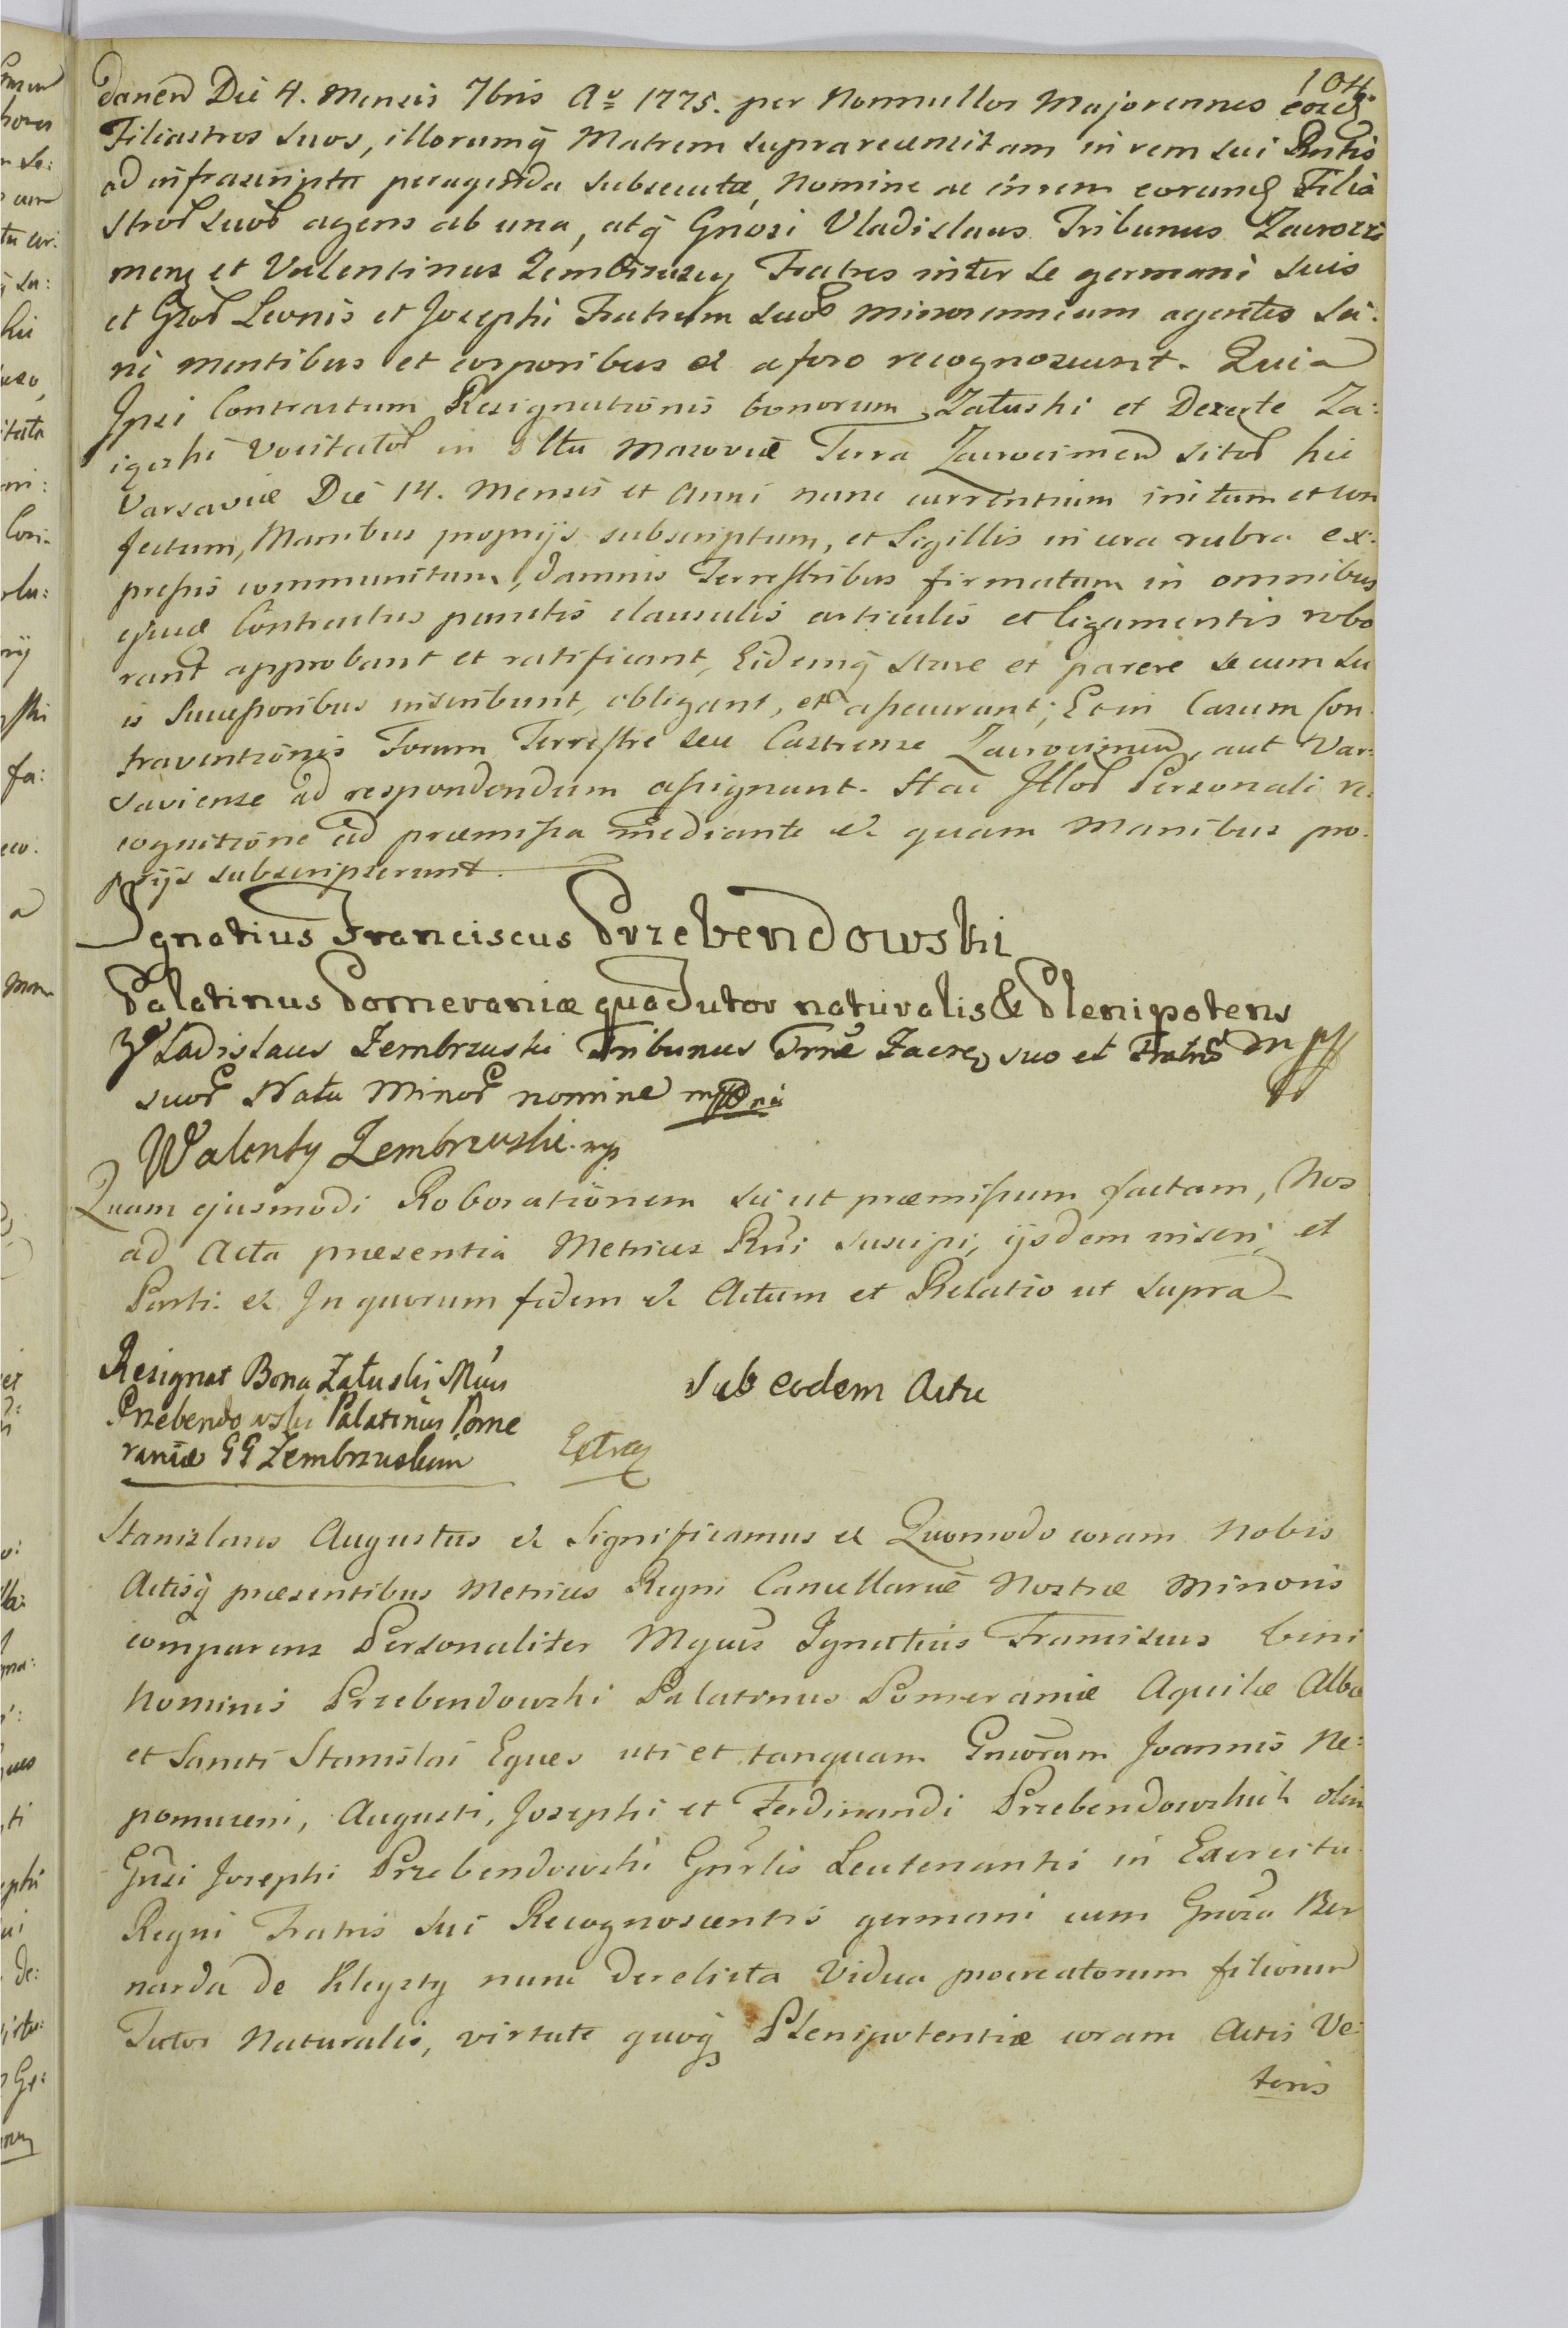 104.
danen Die 4. Mensis 7bris Aō 1775. per Nonnullos Majorennes eorḍ
Filiastros suos, illorumq̃ Matrem suprarecensitam in rem sui Rntis
ad infrascripta peragenda subsecutæ, Nomine ac in rem eorund Filia
stroꝝ suoꝝ agens ab una, atq̃ Gnosi Vladislaus Tribunus Zacroczi
menꝫ et Valentinus Zembrzuscy Fratres inter se germani suis
et Gsoꝝ Leonis et Josephi Fratrum suoꝝ minorennium agentes Sa:
ni mentibus et corporibus &c a foro recognoscunt. Quia
Ipsi Contractum Resignationis bonorum Załuski et Dezerte Za:
igerhi vocitatoꝝ in Pltu Mazoviæ Terra Zacrocimen sitoꝝ hic
Varsaviæ Die 14. Mensis et Anni nunc currentium initum et con
fectum, Manibus proprijs subscriptum, et Sigillis in cera rubra ex:
pressis communitum, damnis Terrestribus firmatum in omnibus
ejus Contractus punctis clausulis articulis et ligamentis robo
rant approbant et ratificant, Eidemq̃ stare et parere se cum su
is Successoribus inscribunt, obligant, et assecurant; Et in Casum Con
traventionis Forum Terrestre seu Castrense Zacrocimen, aut Var:
saviense ad respondendum assignant. Hac Illoꝝ Personali re:
cognitione ad præmissa mediante &c quam Manibus pro:
prijs subscripserunt.
Ignatius Franciscus Przebendowski
Palatinus Pomeraniæ qua Tutor naturalis & Plenipotens
mpp
Wladislaus Zembrzuski Tribunus Trræ Zacroꝫ suo et Fratrũ
suoꝝ Natu Minoꝝ nomine mpp
Walenty Zembrzuski mp
Quam ejusmodi Roborationem sic ut præmissum factam, Nos
ad Acta præsentia Metrices Rni suscipi, ijsdem inseri, et
Parti &c In quorum fidem &c Actum et Relatio ut supra
Resignat Bona Załuski Mcus
Przebendowski Palatinus Pome
raniæ GG Zembrzuskim
Extraꝫ
Sub eodem Actu
Stanislaus Augustus &c Significamus &c Quomodo coram Nobis
Actisq̃ præsentibus Metrices Regni Cancellariæ Nostræ Minoris
comparens Personaliter Mgcus Ignatius Franciscus bini
Nominis Przebendowski Palatinus Pomeraniæ Aquilæ Albæ
et Sancti Stanislai Eques uti et tanquam Gnosorum Joannis Ne:
pomuceni, Augusti, Josephi et Ferdinandi Przebendowskich olim
Gnsi Josephi Przebendowski Gnrlis Leutenantis in Exercitu
Regni Fratris sui Recognoscentis germani cum Gnosa Ber
narda de Kleysty nunc derelicta Vidua procreatorum filiorum
Tutor Naturalis, virtute quoq̃ Plenipotentiæ coram Actis Ve:
teris